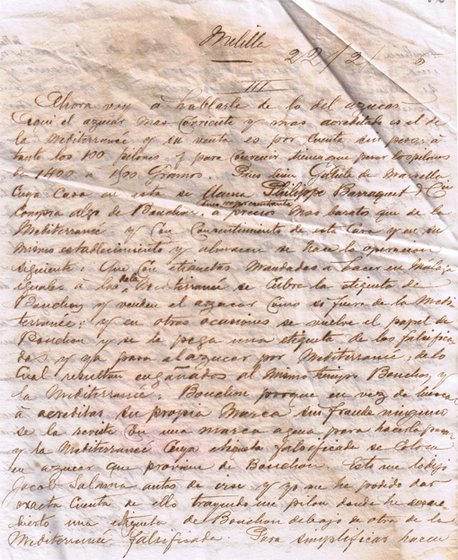 Melilla
22/2/
III
Ahora voy á hablarte de lo del azucar
Aqui el azucar mas corriente y mas acreditado es el de
la Mediterranée y su venta es por cuenta sin pesar á
tanto los 100 pilones y para convenir tienen que pesar los pilones
de 1400 á 1500 Gramos. Pues bien Gilbert de Marsella
Cuya Casa en esta se llama Philippe Barraquet & Cia
representante
Compra algo de Bouchon, á precios mas barato que de la
Mediterranée y con consentimiento de esta Casa y en su
mismo establecimiento y almacen se hace la operacion
siguiente: Que con etiquetas mandadas á hacer en Malaga
iguales á las de la Mediterranée se cubre la etiqueta de
Bouchon y venden el azucar como si fuera de la Medi
terranée; y en otras ocasiones se vuelve el papel de
Bouchon y se le pega una etiqueta de las falsifica
das y ya pasa el azucar por Mediterranée; de lo
cual resultan engañados al mismo tiempo Bouchon, y
la Mediterranée; Bouchon porque en vez de
á acreditar su propia Marca sin fraude ninguno
se la reviste con una marca agena para hacerla pasar
y la Mediterranée Cuya etiqueta falsificada se coloca
en azucar que proviene de Bouchon. Esto me lo dijo
Jacob Salama antes de irse y ya me he podido dar
exacta Cuenta de ello trayendo un pilon donde he descu
bierto una etiqueta de Bouchon debajo de otra de la
Mediterranée falsificada. Para simplificar hacen